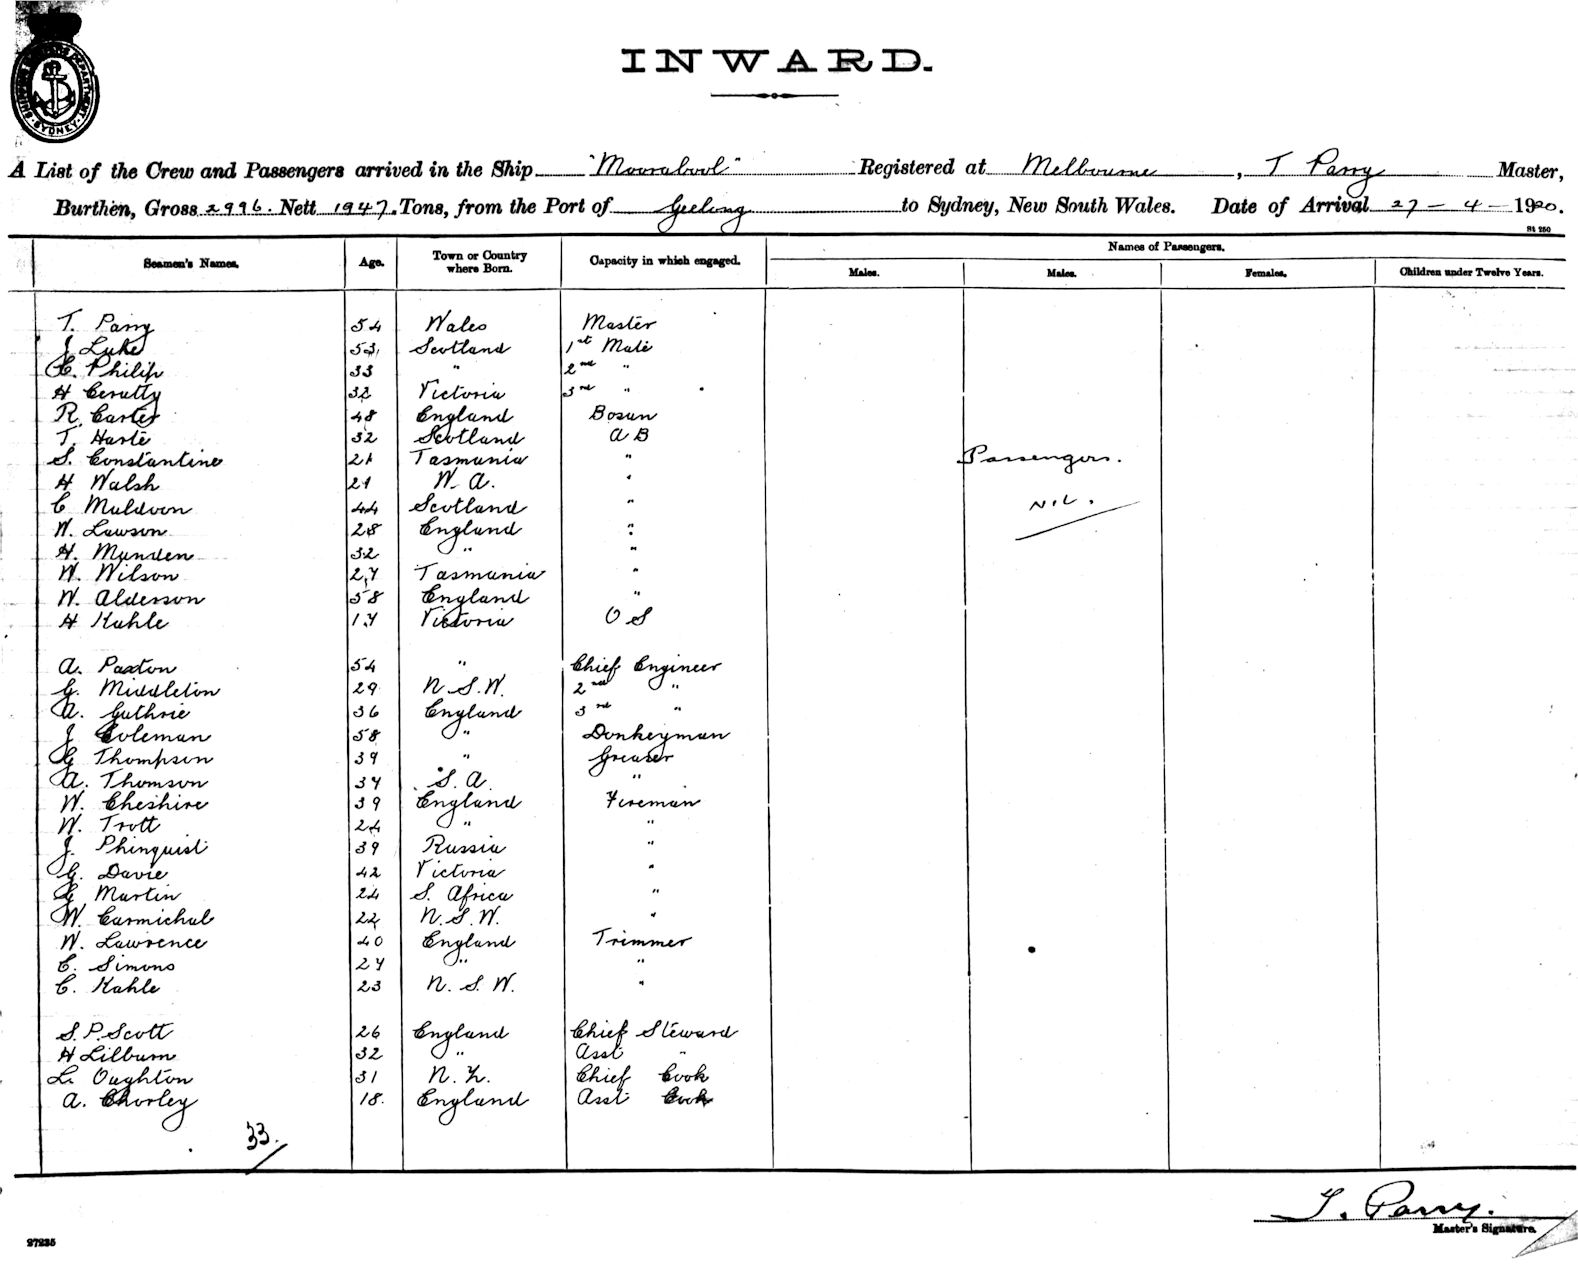 SHIPPING MASTER'S DEPARTMENT · SYDNEY ·
INWARD.
A List of the Crew and Passengers arrived in the Ship "Moorabool" Registered at Melbourne, T Parry Master,
Burthen, Gross 2996. Nett 1947. Tons, from the Port of Geelong to Sydney, New South Wales. Date of Arrival 27 - 4 - 1920.
St 250
Names of Passengers.
Seamen's Names. Age. Town or Country where Born. Capacity in which engaged. Males. Males. Females. Children under Twelve Years.
T. Parry 54 Wales Master
J Luke 53 Scotland 1st Mate
C. Philip 33 " 2nd "
H Cerutty 32 Victoria 3rd "
R. Carter 48 England Bosun
T. Harte 32 Scotland A B
S. Constantine 21 Tasmania " Passengers.
H Walsh 21 W. A. "
C Muldoon 44 Scotland " NIL.
W. Lawson 28 England "
H. Munden 32 " "
W. Wilson 27 Tasmania "
W. Alderson 58 England "
H Kahle 17 Victoria O S
A. Paxton 54 " Chief Engineer
G. Middleton 29 N. S. W. 2nd "
A. Guthrie 36 England 3rd "
J Coleman 58 " Donkeyman
G Thompson 39 " Greaser
A. Thomson 37 S. A. "
W. Cheshire 39 England Fireman
W. Trott 24 " "
J. Phinquist 39 Russia "
G. Davie 42 Victoria "
G Martin 24 S. Africa "
W. Carmichal 22 N. S. W. "
W. Lawrence 40 England Trimmer
C. Simons 27 " "
C. Kahle 23 N. S. W. "
S. P. Scott 26 England Chief Steward
H Lilburn 32 " Asst "
L. Oughton 31 N. Z. Chief Cook
A. Chorley 18. England Asst Cook
33.
T. Parry.
Master's Signature.
27235